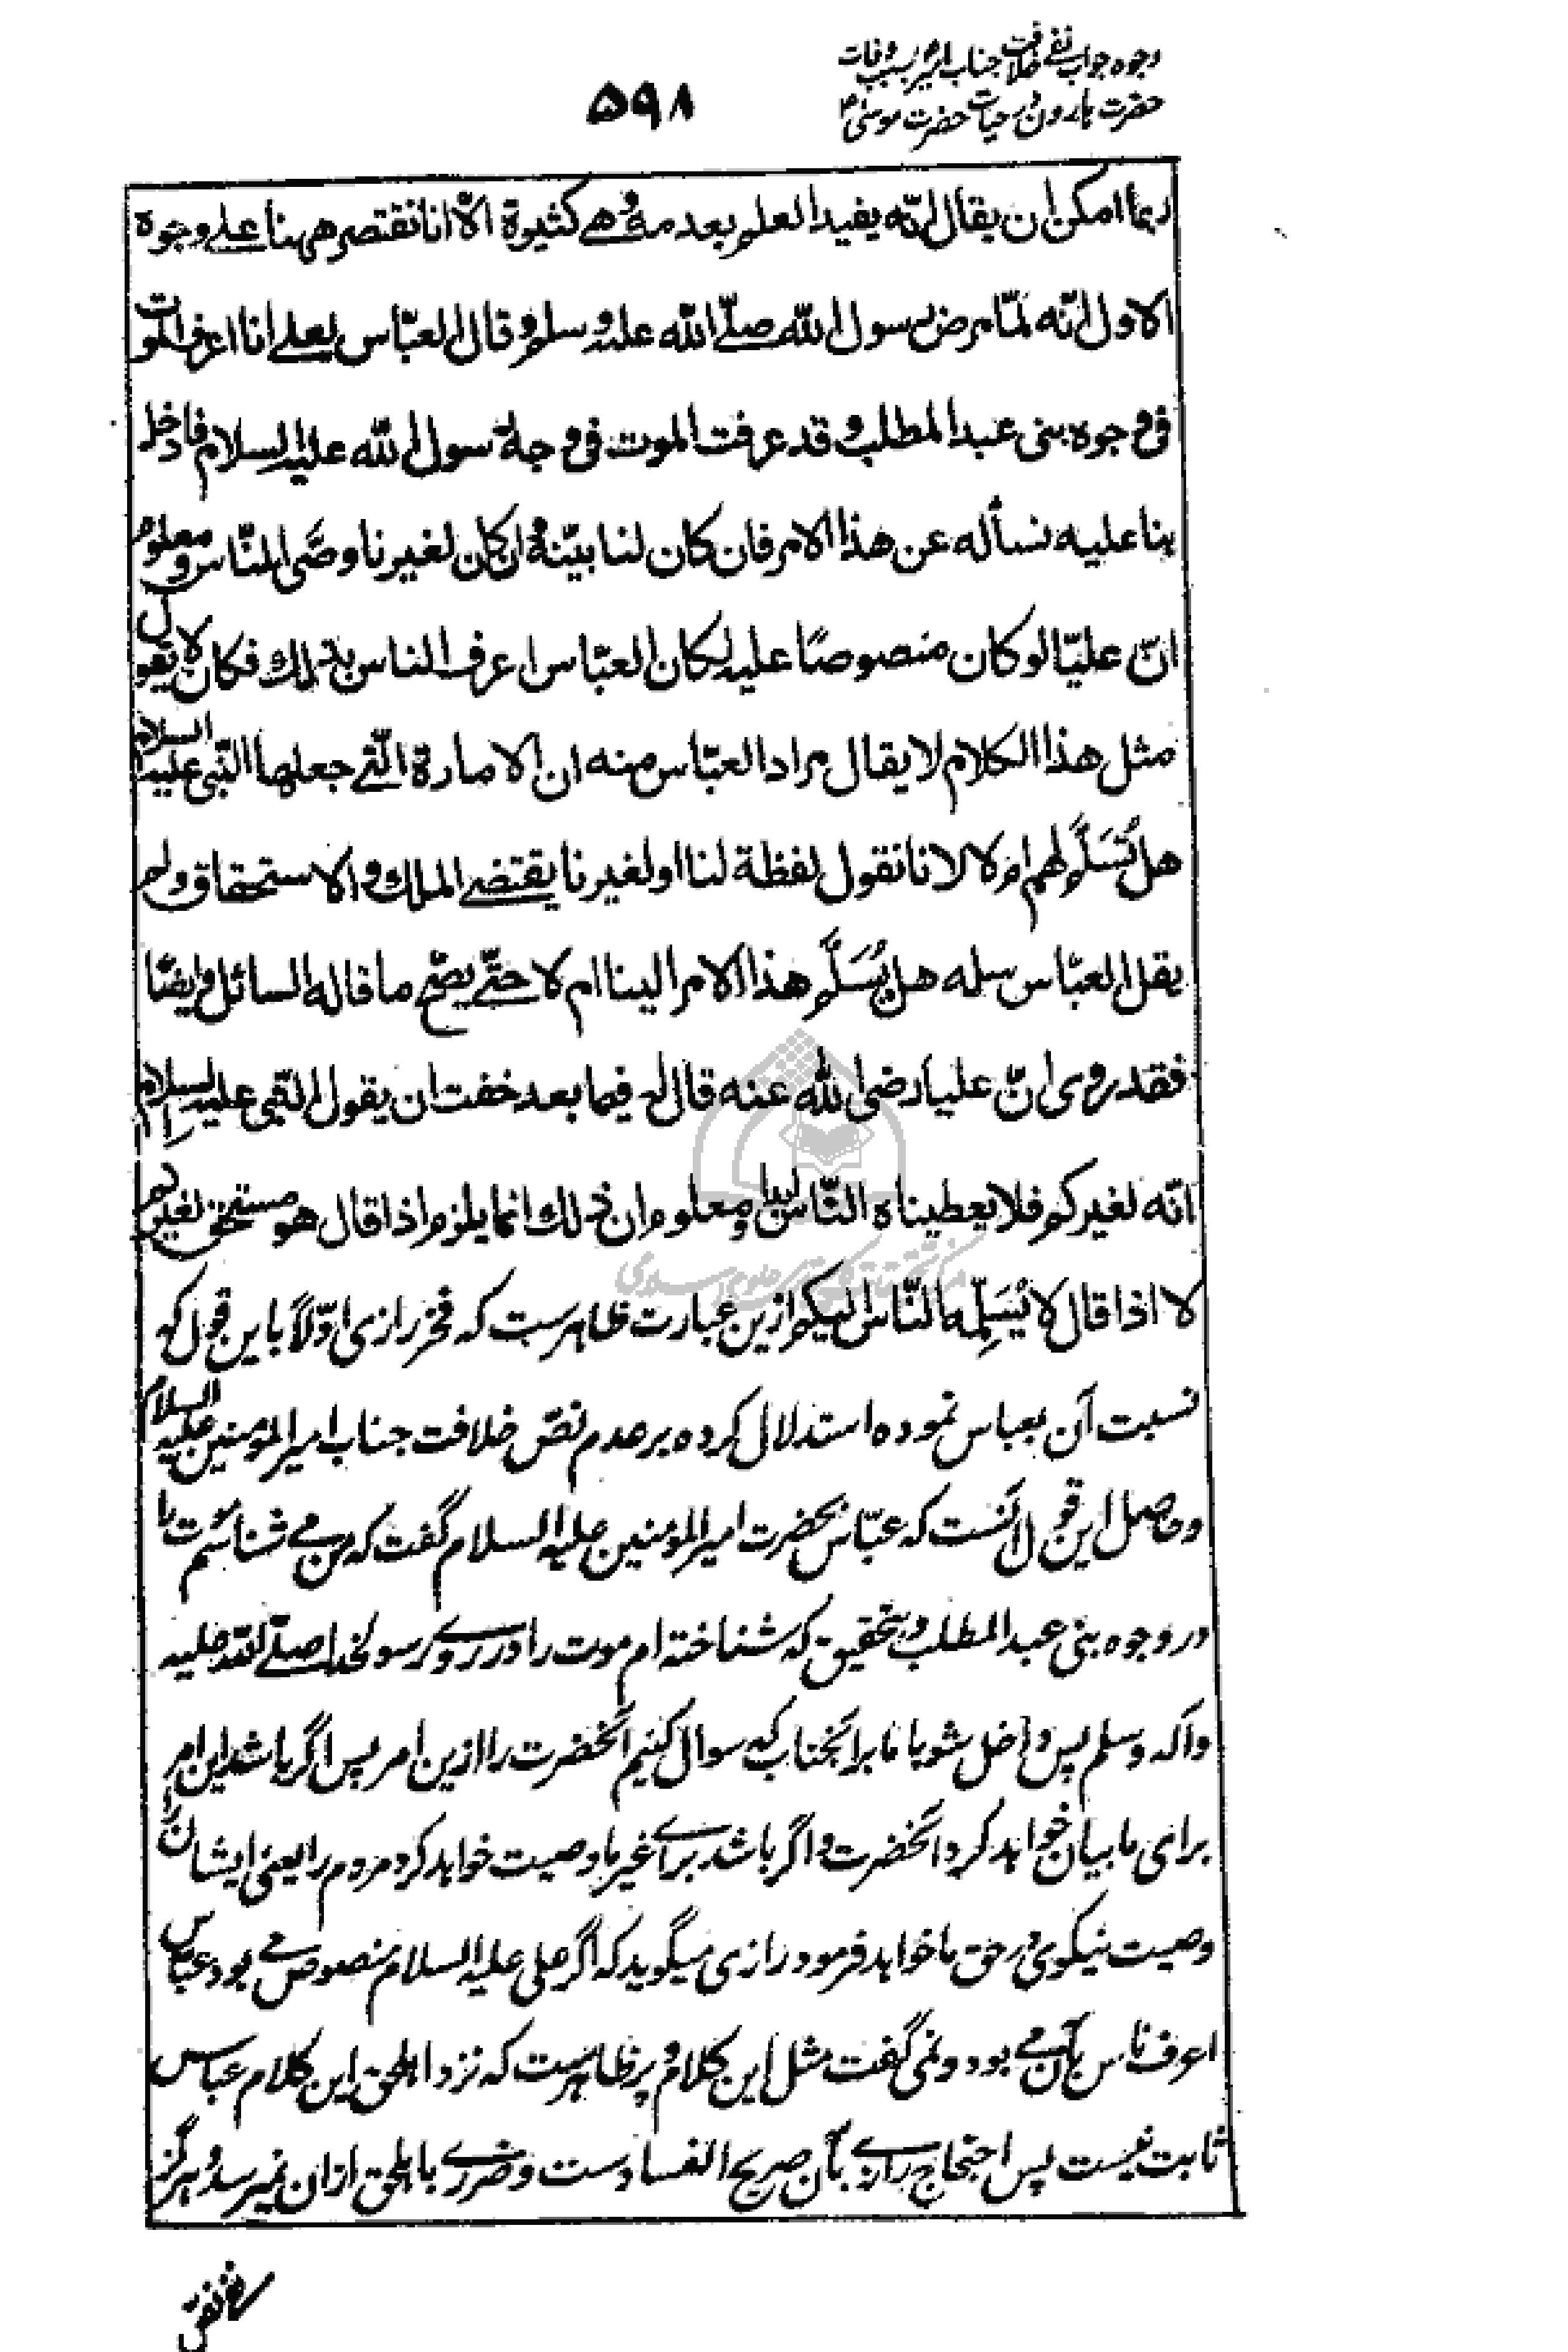 وجوه جواب نفے خلافت جناب امیرؑ بسبب وفات
حضرت ہارونؑ در حیات حضرت موسیٰؑ
۵۹۸
ربما امکن ان یقال انّه یفید العلم بعدمه وهے کثیرة الّا انا نقتصر ههنا علے وجوه
الاول انّه لمّا مرض رسول الله صلّے الله علیه وسلم قال العبّاس لعلے انا اعرف الموت
فی وجوه بنی عبد المطلب وقد عرفت الموت فی وجه رسول الله علیه السلام فادخل
بنا علیه نسأله عن هذا الامر فان کان لنا بیّنه وان کان لغیرنا وصَّی النّاس ومعلوم
انّ علیّا لو کان منصوصًا علیه لکان العبّاس اعرف الناس بذلك فکان لا یقول
مثل هذا الکلام لا یقال مراد العبّاس منه ان الامارة الّتے جعلها النّبی علیه السلام
هل تُسَلَّم لهم ام لا لانا نقول لفظة لنا او لغیرنا یقتضے الملك والاستحقاق ولم
یقل العبّاس سله هل یُسَلَّم هذا الامر الینا ام لا حتّے یصحّ ما قاله السائل وایضًا
فقد روی انّ علیا رضی الله عنه قال له فیما بعد خفت ان یقول النّبی علیه السلام
انّه لغیرکم فلا یعطیناه النّاس ابدا ومعلوم ان ذلك انما یلزم اذا قال هو مستحق لغیرکم
لا اذا قال لا یُسَلِّمه النّاس الیکم ازین عبارت ظاہرست کہ فخر رازی اوّلاً باین قول کہ
نسبت آن بعباس نموده استدلال کرده بر عدم نصّ خلافت جناب امیر المومنین علیہ السلام
وحاصل این قول آنست کہ عبّاس بحضرت امیر المومنین علیہ السلام گفت کہ من مے شناسم موت را
در وجوه بنی عبد المطلب وبتحقیق کہ شناختہ ام موت را در روے رسولخدا صلّے اللّہ علیہ
وآلہ وسلم پس داخل شو با ما بر آنجناب کہ سوال کنیم آنحضرت را ازین امر پس اگر باشد این امر
برای ما بیان خواہد کرد آنحضرت واگر باشد براے غیر ما وصیت خواہد کرد مردم را یعنی ایشان را
وصیت نیکوئی در حق ما خواہد فرمود رازی میگوید کہ اگر علی علیہ السلام منصوص مے بود عباس
اعرف ناس بآن مے بود ونمی گفت مثل این کلام وپر ظاہرست کہ نزد اہلحق این کلام عباس
ثابت نیست پس احتجاج رازے بآن صریح الفسادست وضررے باہلحق ازان نمیرسد وہرگز